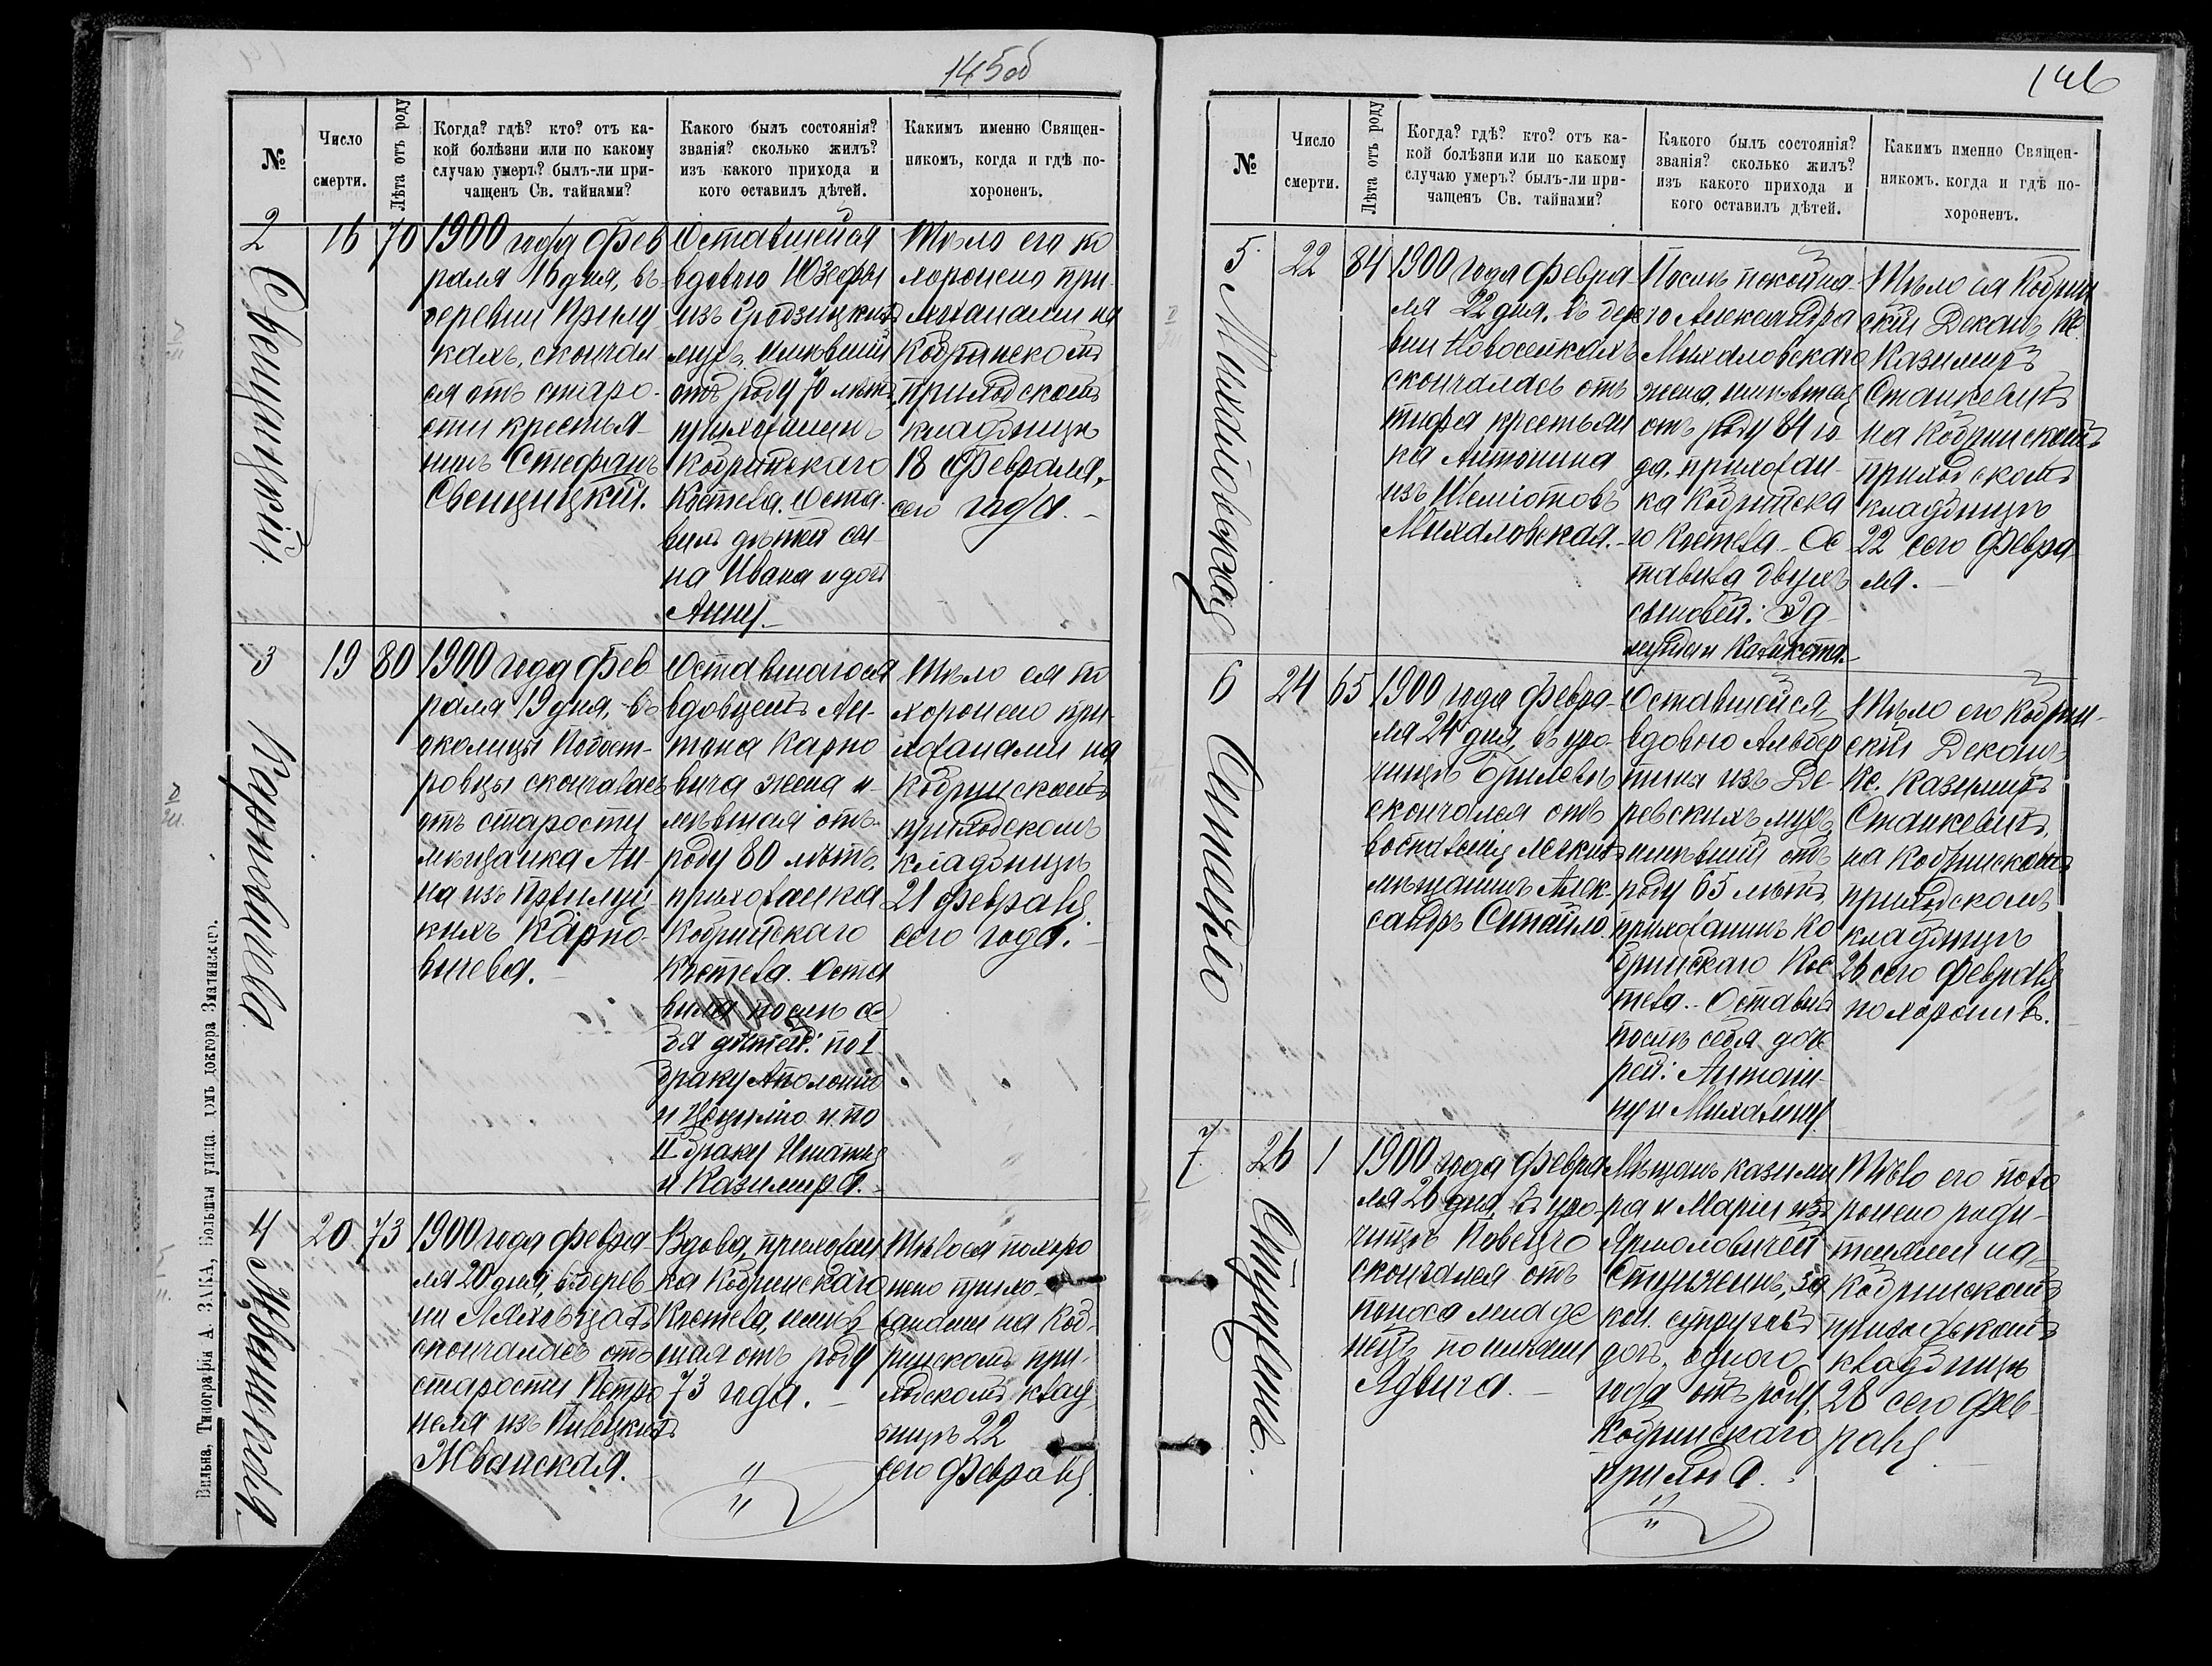 145об
№
Число
смерти.
Лѣта отъ роду
Когда? гдѣ? кто? отъ ка-
кой болѣзни или по какому
случаю умеръ? былъ-ли при-
чащенъ Св. тайнами?
Какого былъ состоянія?
званія? сколько жилъ?
изъ какого прихода и
кого оставилъ дѣтей.
Какимъ именно Священ-
никомъ, когда и гдѣ по-
хороненъ.
2
Свенцицкій.
16
70
1900 года Фев
раля 16 дня, въ
деревни Прилу
кахъ, скончал
ся отъ старо-
сти крестья-
нинъ Стефанъ
Свенцицкій.
Оставшейся
вдовою Юзефы
изъ Гродзицкихъ
мужъ, имѣвшій
отъ роду 70 лѣтъ,
прихожанинъ
Кобринскаго
Костела. Оста-
вилъ дѣтей сы
на Ивана и дочь
Анну.
Тѣло его по
хоронено при-
хожанами на
Кобринскомъ
приходскомъ
кладбищѣ
18 Февраля
сего года.
3
Карповичева
19
80
1900 года Фев
раля 19 дня, въ
околицы
ровцы скончалась
отъ старости
мѣщанка Ан-
на изъ Прилуц
кихъ Карпо-
вичева.
Оставшагося
вдовцемъ Ан-
тона Карпо
вича жена и-
мѣвшая отъ
роду 80 лѣтъ.
прихожанка
Кобринскаго
Костела. Оста
вила послѣ се
бя дѣтей: по I
браку Аполонію
и Цецилію и по
II браку Игнатія
и Казимира.
Тѣло ея по
хоронено при-
хожанами на
Кобринскомъ
приходскомъ
кладбищѣ
21 Февраля
сего года.
4
Жванская
20
73
1900 года Февра-
ля 20 дня, въ дерев
ни Ляховцахъ
скончалась отъ
старости Петро
неля изъ
Жванская.
Вдова, прихожан
ка Кобринскаго
Костела, имѣв
шая отъ роду
73 года.
"
"
Тѣло ея похоро
нено прихо-
жанами на Коб-
ринскомъ при-
ходскомъ клад
бищѣ 22
сего Февраля
Вильна, Типографія А. ЗАКА, Большая улица, домъ доктора Златинскаго.
146
№
Число
смерти.
Лѣта отъ роду
Когда? гдѣ? кто? отъ ка-
кой болѣзни или по какому
случаю умеръ? былъ-ли при-
чащенъ Св. тайнами?
Какого былъ состоянія?
званія? сколько жилъ?
изъ какого прихода и
кого оставилъ дѣтей.
Какимъ именно Священ-
никомъ, когда и гдѣ по-
хороненъ.
5.
Михаловская
22
84
1900 года Февра-
ля 22 дня, въ дере
вни Новоселкахъ
скончалась отъ
тифа крестьян
ка Антонина
изъ Шеліотовъ
Михаловская.
Послѣ покойна-
го Александра
Михаловскаго
жена, имѣвшая
отъ роду 84 го-
да, прихожан-
ка Кобринска
го Костела. Ос
тавила двухъ
сыновей: Эд-
мунда и Каликста.
Тѣло ея Кобрин
скій Деканъ Кс.
Казимиръ
Станкевичъ
на Кобринскомъ
приходскомъ
кладбищѣ
22 сего Февра
ля.
6
Ситайло
24
65
1900 года Февра-
ля 24 дня, въ уро-
чищѣ Брилевѣ
скончался отъ
воспаленія легкихъ
мѣщанинъ Алек-
сандръ Ситайло.
Оставшейся
вдовою Альбер
тины изъ Де-
ревскихъ мужъ,
имѣвшій отъ
роду 65 лѣтъ,
прихожанинъ Ко
бринскаго Кос
тела. Оставилъ
послѣ себя доче
рей: Антони-
ну и Михалину
Тѣло его Кобрин-
скій Деканъ
Кс. Казимиръ
Станкевичъ,
на Кобринскомъ
приходскомъ
кладбищѣ
26 сего Февраля
похоронилъ.
7.
26
1
1900 года Февра
ля 26 дня, въ уро-
чищѣ
скончался отъ
поноса младе
нецъ по имени
Ядвига.
Мѣщанъ Казими
ра и Маріи изъ
Ярмоловичей
за
кон. супруговъ
дочь, одного
года отъ роду,
Кобринскаго
прихода.
"
"
Тѣло его похо
ронено роди-
телями на
Кобринскомъ
приходскомъ
кладбищѣ
28 сего Фев-
раля